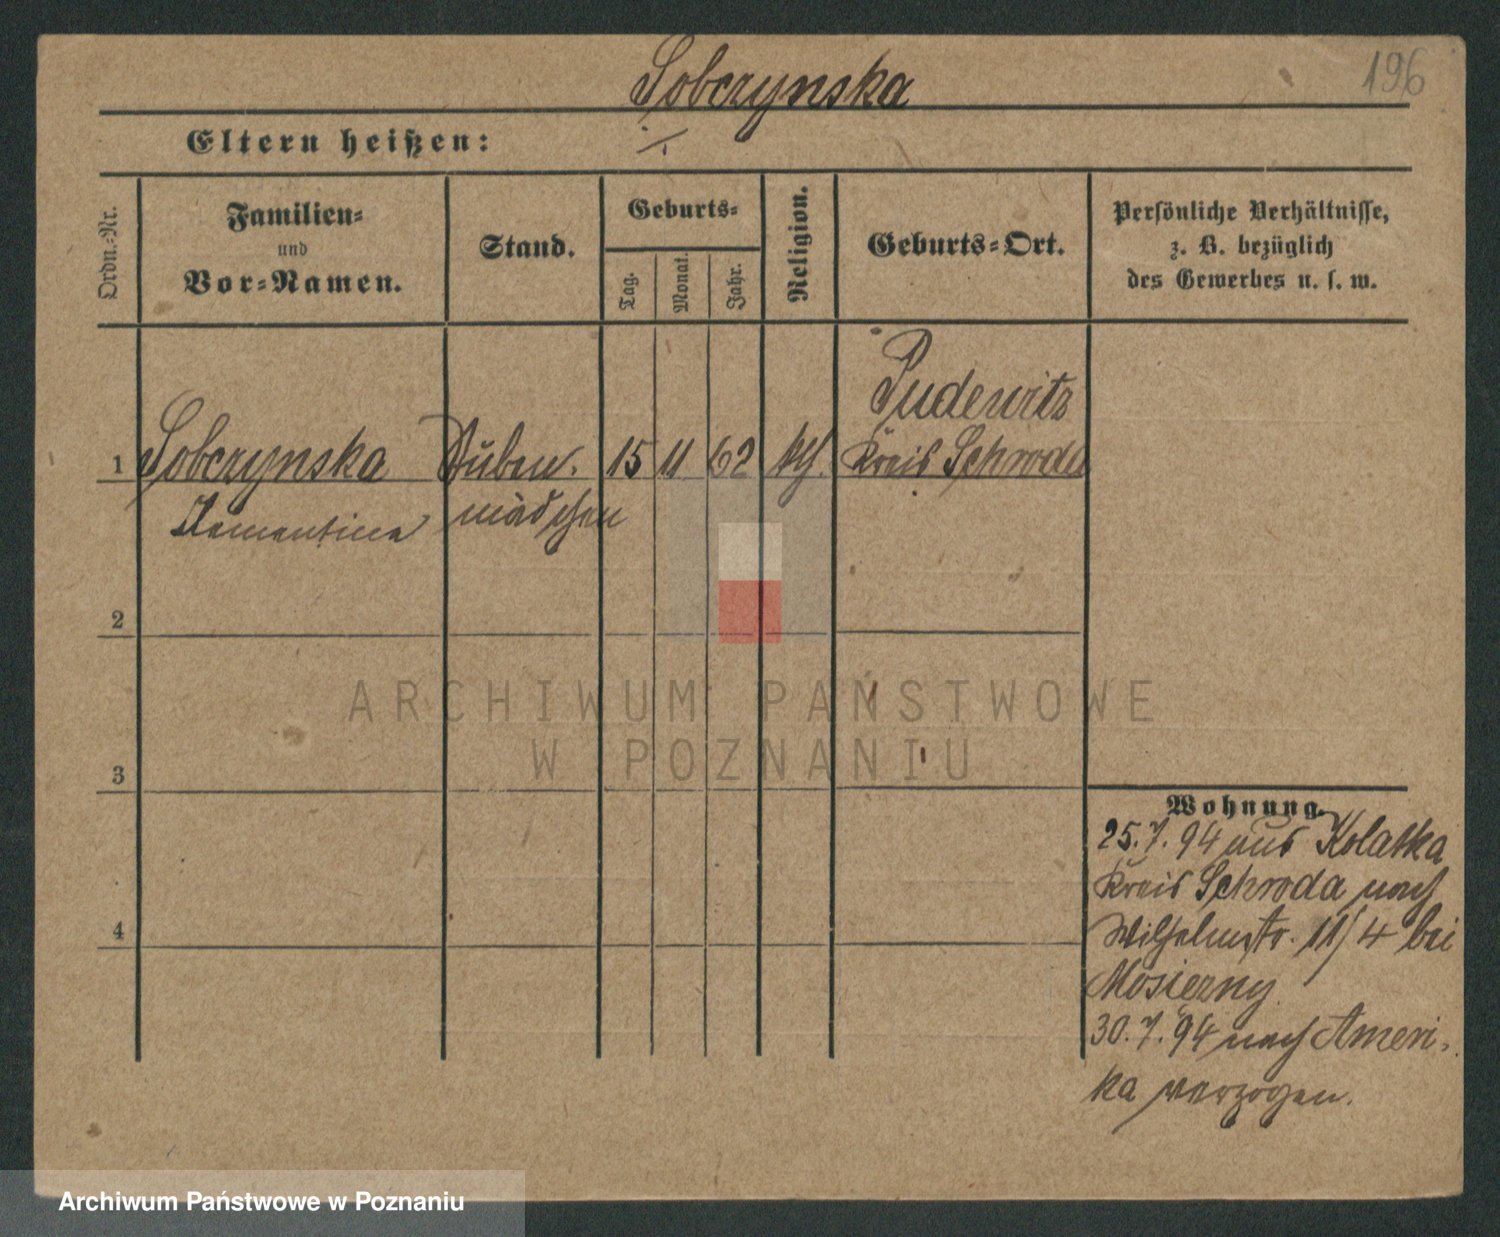 Sobczynska
196
Eltern heißen:
Ordn.-Nr.
Familien-
und
Vor-Namen.
Stand.
Geburts-
Tag.
Monat.
Jahr.
Religion.
Geburts-Ort.
Persönliche Verhältnisse,
z. B. bezüglich
des Gewerbes u. s. w.
Pudewitz
1 Sobczynska Stuben- 15 11 62 kth. Kreis Schroda
Klementina mädchen
2
3
4
Wohnung.
25.7.94 aus Kolatka
Kreis Schroda nach
Wilhelmstr. 11/4 bei
Mosierny
30.7.94 nach Ameri-
ka verzogen.
ARCHIWUM PAŃSTWOWE
W POZNANIU
Archiwum Państwowe w Poznaniu